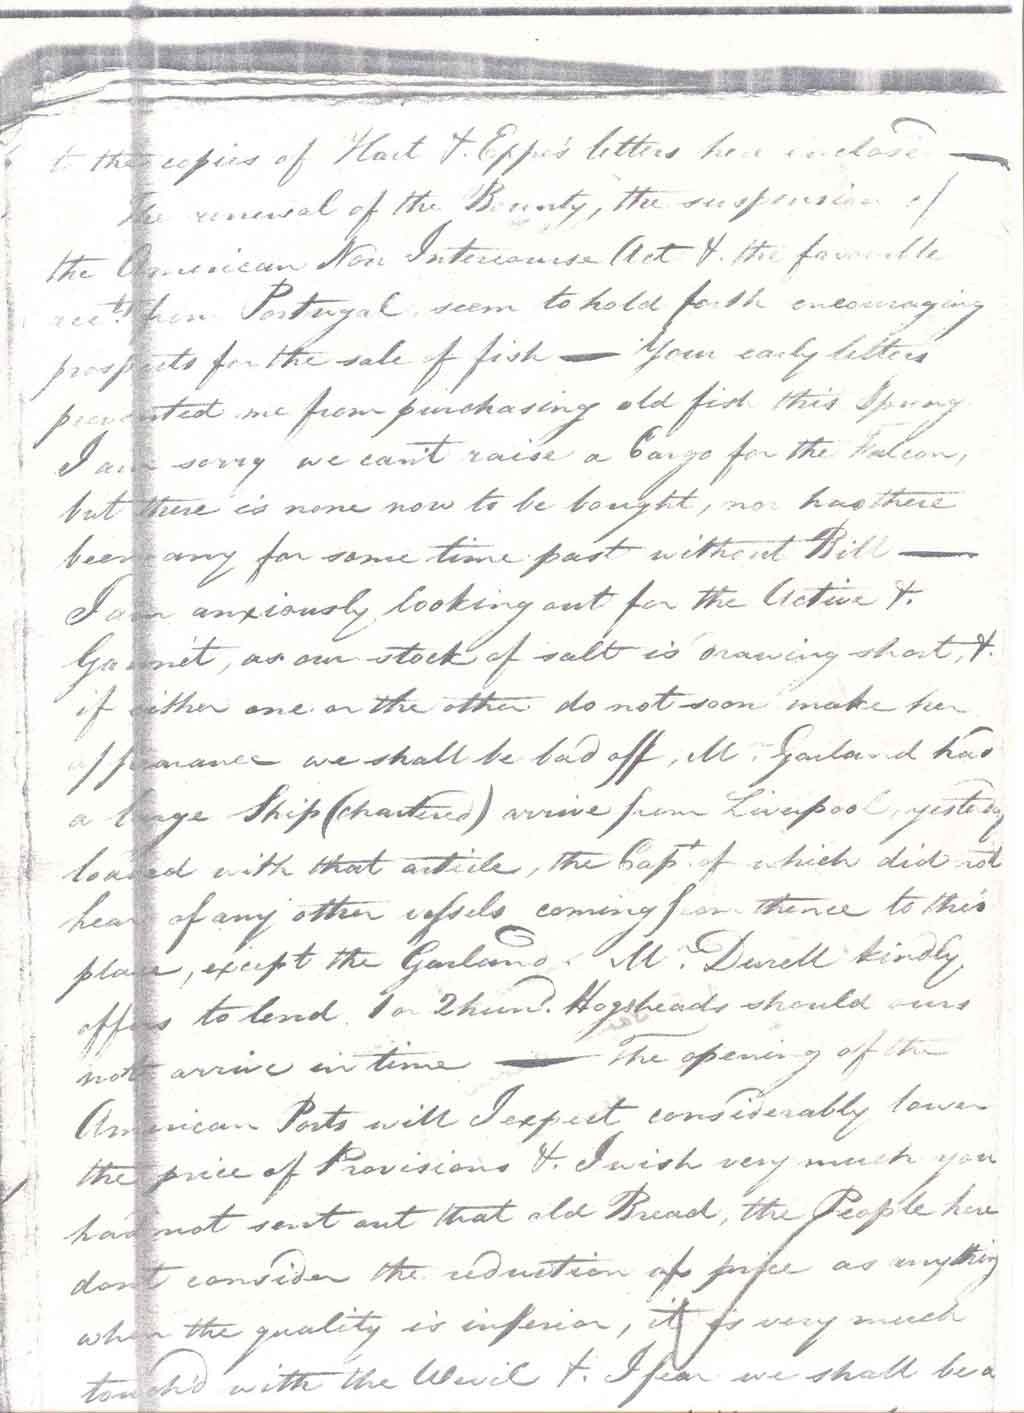 to the copies of Hart & Eppe's letters here inclosed —
The renewal of the Bounty, the suspension of
the American Non Intercourse Act & the favourable
rects from Portugal seem to hold forth encouraging
prospects for the sale of fish — Your early letters
prevented me from purchasing old fish this Spring
I am sorry we can't raise a Cargo for the Falcon,
but there is none now to be bought, nor has there
been any for some time past without Bill —
I am anxiously looking out for the Active &
Gannet, as our stock of salt is drawing short, &
if either one or the other do not soon make her
appearance we shall be bad off, Mr. Garland had
a large Ship (chartered) arrive from Liverpool, yesterday
loaded with that article, the Capt. of which did not
hear of any other vessels coming from thence to this
place, except the Garland. Mr. Durell kindly
offers to lend 1 or 2 hund. Hogsheads should ours
not arrive in time — The opening of the
American Ports will I expect considerably lower
the price of Provisions & I wish very much you
had not sent out that old Bread, the People here
dont consider the reduction of price as anything
when the quality is inferior, it is very much
touch'd with the Wevil & I fear we shall be a